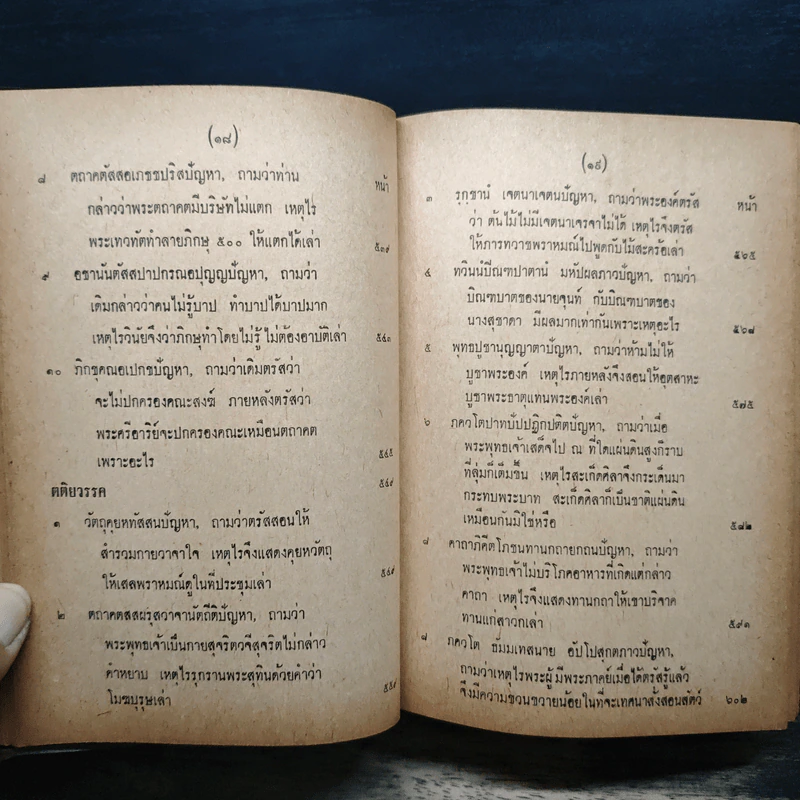 (๑๘)
หน้า
๘ ตถาคตัสสอเภชชปริสปัญหา, ถามว่าท่าน
กล่าวว่าพระตถาคตมีบริษัทไม่แตก เหตุไร
พระเทวทัตทำลายภิกษุ ๕๐๐ ให้แตกได้เล่า ๕๓๙
๙ อชานันตัสสปาปกรณอปุญญปัญหา, ถามว่า
เดิมกล่าวว่าคนไม่รู้บาป ทำบาปได้บาปมาก
เหตุไรวินัยจึงว่าภิกษุทำโดยไม่รู้ ไม่ต้องอาบัติเล่า ๕๔๓
๑๐ ภิกขุคณอเปกขปัญหา, ถามว่าเดิมตรัสว่า
จะไม่ปกครองคณะสงฆ์ ภายหลังตรัสว่า
พระศรีอาริย์จะปกครองคณะเหมือนตถาคต
เพราะอะไร ๕๔๕
ตติยวรรค ๕๔๙
๑ วัตถุคุยหทัสสนปัญหา, ถามว่าตรัสสอนให้
สำรวมกายวาจาใจ เหตุไรจึงแสดงคุยหวัตถุ
ให้เสลพราหมณ์ดูในที่ประชุมเล่า ๕๔๙
๒ ตถาคตสสผรุสวาจานัตถีติปัญหา, ถามว่า
พระพุทธเจ้าเป็นกายสุจริตวจีสุจริตไม่กล่าว
คำหยาบ เหตุไรรุกรานพระสุทินด้วยคำว่า
โมฆบุรุษเล่า ๕๕๙
(๑๙)
หน้า
๓ รุกฺขานํ เจตนาเจตนปัญหา, ถามว่าพระองค์ตรัส
ว่า ต้นไม้ไม่มีเจตนาเจรจาไม่ได้ เหตุไรจึงตรัส
ให้ภารทวาชพราหมณ์ไปพูดกับไม้สะคร้อเล่า ๕๖๕
๔ ทวินนํปิณฑปาตานํ มหัปผลภาวปัญหา, ถามว่า
บิณฑบาตของนายจุนท์ กับบิณฑบาตของ
นางสุชาดา มีผลมากเท่ากันเพราะเหตุอะไร ๕๖๗
๕ พุทธปูชานุญญาตาปัญหา, ถามว่าห้ามไม่ให้
บูชาพระองค์ เหตุไรภายหลังจึงสอนให้อุตสาหะ
บูชาพระธาตุแทนพระองค์เล่า ๕๗๕
๖ ภควโตปาทปัปปฏิกปติตปัญหา, ถามว่าเมื่อ
พระพุทธเจ้าเสด็จไป ณ ที่ใดแผ่นดินสูงก็ราบ
ที่ลุ่มก็เต็มขึ้น เหตุไรสะเก็ดศิลาจึงกระเด็นมา
กระทบพระบาท สะเก็ดศิลาก็เป็นชาติแผ่นดิน
เหมือนกันมิใช่หรือ ๕๘๒
๘ คาถาภิคีตโภชนทานกถายกถนปัญหา, ถามว่า
พระพุทธเจ้าไม่บริโภคอาหารที่เกิดแต่กล่าว
คาถา เหตุไรจึงแสดงทานกถาให้เขาบริจาค
ทานแก่สาวกเล่า ๕๙๑
๘ ภควโต ธัมมเทสนาย อัปโปสุกตภาวปัญหา,
ถามว่าเหตุไรพระผู้มีพระภาคย์เมื่อได้ตรัสรู้แล้ว
จึงมีความขวนขวายน้อยในที่จะเทศนาสั่งสอนสัตว์ ๖๐๒